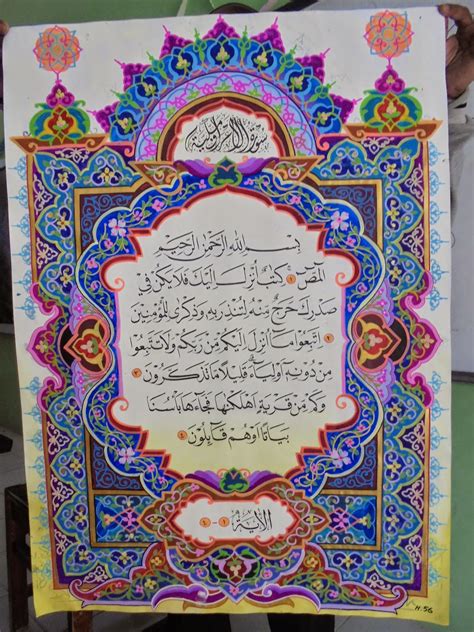 سورة الاعراف مكية
بسم الله الرحمن الرحيم
المص ١ كتب أنزل إليك فلا يكن في
صدرك حرج منه لتنذر به وذكرى للمؤمنين
٢ اتبعوا ما أنزل إليكم من ربكم ولا تتبعوا
من دونه أولياء قليلا ما تذكرون ٣
وكم من قرية اهلكنها فجاءها بأسنا
بياتا أوهم قائلون ٤
الآية ١ - ٤
11:56